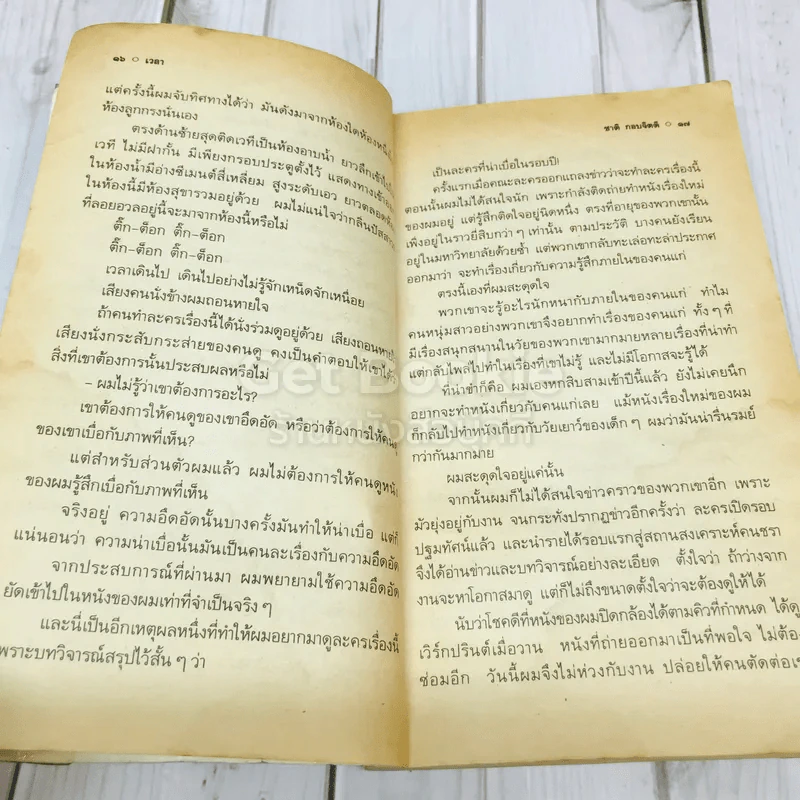 ๑๖ ○ เวลา
แต่ครั้งนี้ผมจับทิศทางได้ว่า มันดังมาจากห้องใดห้องหนึ่ง
ห้องลูกกรงนั่นเอง
ตรงด้านซ้ายสุดติดเวทีเป็นห้องอาบน้ำ ยาวลึกเข้าไป
เวที ไม่มีฝากั้น มีเพียงกรอบประตูตั้งไว้ แสดงทางเข้าออก
ในห้องน้ำมีอ่างซีเมนต์สี่เหลี่ยม สูงระดับเอว ยาวตลอด
ในห้องนี้มีห้องสุขารวมอยู่ด้วย ผมไม่แน่ใจว่ากลิ่นปัสสาวะ
ที่ลอยอวลอยู่นี้จะมาจากห้องนี้หรือไม่
ติ๊ก-ต็อก ติ๊ก-ต็อก
ติ๊ก-ต็อก ติ๊ก-ต็อก
เวลาเดินไป เดินไปอย่างไม่รู้จักเหน็ดจักเหนื่อย
เสียงคนนั่งข้างผมถอนหายใจ
ถ้าคนทำละครเรื่องนี้ได้นั่งร่วมดูอยู่ด้วย เสียงถอนหายใจ
เสียงนั่งกระสับกระส่ายของคนดู คงเป็นคำตอบให้เขาได้
สิ่งที่เขาต้องการนั้นประสบผลหรือไม่
– ผมไม่รู้ว่าเขาต้องการอะไร?
เขาต้องการให้คนดูของเขาอึดอัด หรือว่าต้องการให้คนดู
ของเขาเบื่อกับภาพที่เห็น?
แต่สำหรับส่วนตัวผมแล้ว ผมไม่ต้องการให้คนดูหนัง
ของผมรู้สึกเบื่อกับภาพที่เห็น
จริงอยู่ ความอึดอัดนั้นบางครั้งมันทำให้น่าเบื่อ แต่ก็
แน่นอนว่า ความน่าเบื่อนั้นมันเป็นคนละเรื่องกับความอึดอัด
จากประสบการณ์ที่ผ่านมา ผมพยายามใช้ความอึดอัด
ยัดเข้าไปในหนังของผมเท่าที่จำเป็นจริง ๆ
และนี่เป็นอีกเหตุผลหนึ่งที่ทำให้ผมอยากมาดูละครเรื่องนี้
เพราะบทวิจารณ์สรุปไว้สั้น ๆ ว่า
ชาติ กอบจิตติ ○ ๑๗
เป็นละครที่น่าเบื่อในรอบปี!
ครั้งแรกเมื่อคณะละครออกแถลงข่าวว่าจะทำละครเรื่องนี้
ตอนนั้นผมไม่ได้สนใจนัก เพราะกำลังติดถ่ายทำหนังเรื่องใหม่
ของผมอยู่ แต่รู้สึกติดใจอยู่นิดหนึ่ง ตรงที่อายุของพวกเขานั้น
เพิ่งอยู่ในราวยี่สิบกว่า ๆ เท่านั้น ตามประวัติ บางคนยังเรียน
อยู่ในมหาวิทยาลัยด้วยซ้ำ แต่พวกเขากลับทะเล่อทะล่าประกาศ
ออกมาว่า จะทำเรื่องเกี่ยวกับความรู้สึกภายในของคนแก่
ตรงนี้เองที่ผมสะดุดใจ
พวกเขาจะรู้อะไรนักหนากับภายในของคนแก่ ทำไม
คนหนุ่มสาวอย่างพวกเขาจึงอยากทำเรื่องของคนแก่ ทั้ง ๆ ที่
มีเรื่องสนุกสนานในวัยของพวกเขามากมายหลายเรื่องที่น่าทำ
แต่กลับไพล่ไปทำในเรื่องที่เขาไม่รู้ และไม่มีโอกาสจะรู้ได้
ที่น่าขำก็คือ ผมเองหกสิบสามเข้าปีนี้แล้ว ยังไม่เคยนึก
อยากจะทำหนังเกี่ยวกับคนแก่เลย แม้หนังเรื่องใหม่ของผม
ก็กลับไปทำหนังเกี่ยวกับวัยเยาว์ของเด็ก ๆ ผมว่ามันน่ารื่นรมย์
กว่ากันมากมาย
ผมสะดุดใจอยู่แค่นั้น
จากนั้นผมก็ไม่ได้สนใจข่าวคราวของพวกเขาอีก เพราะ
มัวยุ่งอยู่กับงาน จนกระทั่งปรากฏข่าวอีกครั้งว่า ละครเปิดรอบ
ปฐมทัศน์แล้ว และนำรายได้รอบแรกสู่สถานสงเคราะห์คนชรา
จึงได้อ่านข่าวและบทวิจารณ์อย่างละเอียด ตั้งใจว่า ถ้าว่างจาก
งานจะหาโอกาสมาดู แต่ก็ไม่ถึงขนาดตั้งใจว่าจะต้องดูให้ได้
นับว่าโชคดีที่หนังของผมปิดกล้องได้ตามคิวที่กำหนด ได้ดู
เวิร์กปรินต์เมื่อวาน หนังที่ถ่ายออกมาเป็นที่พอใจ ไม่ต้อง
ซ่อมอีก วันนี้ผมจึงไม่ห่วงกับงาน ปล่อยให้คนตัดต่อเขา